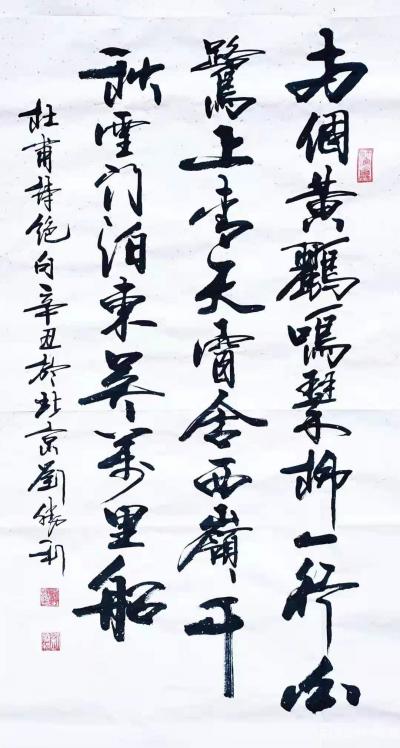 两個黄鸝鳴翠柳一行白
鷺上青天窗含西嶺千
秋雪门泊東吴萬里船
杜甫詩绝句辛丑於北京劉勝利